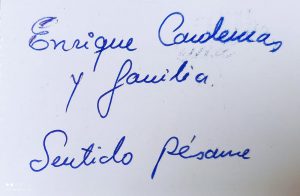 Enrique Cardenas
y familia.
Sentido pésame